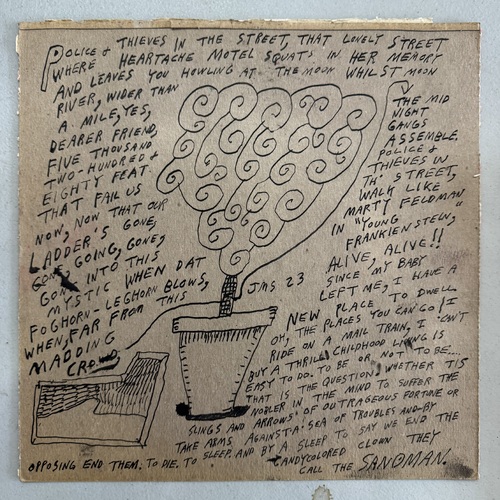 POLICE & THIEVES IN THE STREET, THAT LONELY STREET
WHERE HEARTACHE MOTEL SQUATS IN HER MEMORY
AND LEAVES YOU HOWLING AT THE MOON WHILST MOON
RIVER, WIDER THAN
A MILE, YES,
DEARER FRIEND,
FIVE THOUSAND
TWO-HUNDRED &
EIGHTY FEAT
THAT FAIL US
NOW, NOW THAT OUR
LADDER'S GONE,
GONE, GOING, GONE,
GON INTO THIS
MYSTIC WHEN DAT
FOGHORN-LEGHORN BLOWS,
WHEN, FAR FROM THIS
MADDING
CROWD,
THE MID
NIGHT
GANGS
ASSEMBLE,
POLICE &
THIEVES IN
TH' STREET,
WALK LIKE
MARTY FELDMAN
IN "YOUNG
FRANKIENSTEIN,"
ALIVE, ALIVE!!
SINCE MY BABY
LEFT ME, I HAVE A
NEW PLACE TO DWELL
OH, THE PLACES YOU CAN GO! I
RIDE ON A MAIL TRAIN, I CAN'T
BUY A THRILL CHILDHOOD LIVING IS
EASY TO DO. TO BE OR NOT TO BE...
THAT IS THE QUESTION, WHETHER TIS
NOBLER IN THE MIND TO SUFFER THE
SLINGS AND ARROWS OF OUTRAGEOUS FORTUNE OR
TAKE ARMS AGAINST A SEA OF TROUBLES AND BY
OPPOSING END THEM. TO DIE. TO SLEEP. AND BY A SLEEP TO SAY WE END THE
CANDYCOLORED CLOWN THEY
CALL THE SANDMAN.
JMS 23